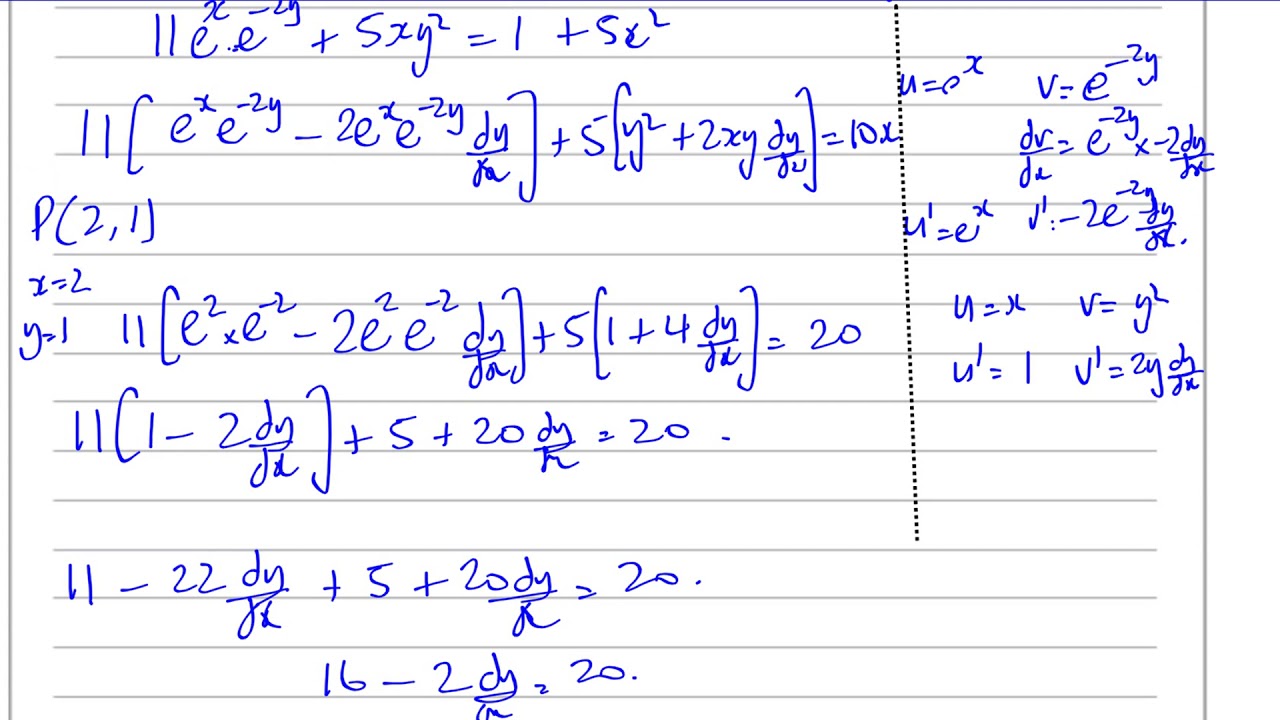 11e^x.e^-2y + 5xy² = 1 + 5x²
11[e^x e^-2y − 2e^x e^-2y dy/dx] + 5[y² + 2xy dy/dx] = 10x
P(2,1)
x=2
y=1
11[e² × e^-2 − 2e² e^-2 dy/dx] + 5[1 + 4 dy/dx] = 20
11[1 − 2dy/dx] + 5 + 20 dy/dx = 20.
11 − 22 dy/dx + 5 + 20dy/dx = 20.
16 − 2 dy/dx = 20.
u=e^x v=e^-2y
dv/dx = e^-2y × -2dy/dx
u'=e^x v'=-2e^-2y dy/dx.
u=x v=y²
u'=1 v'=2y dy/dx